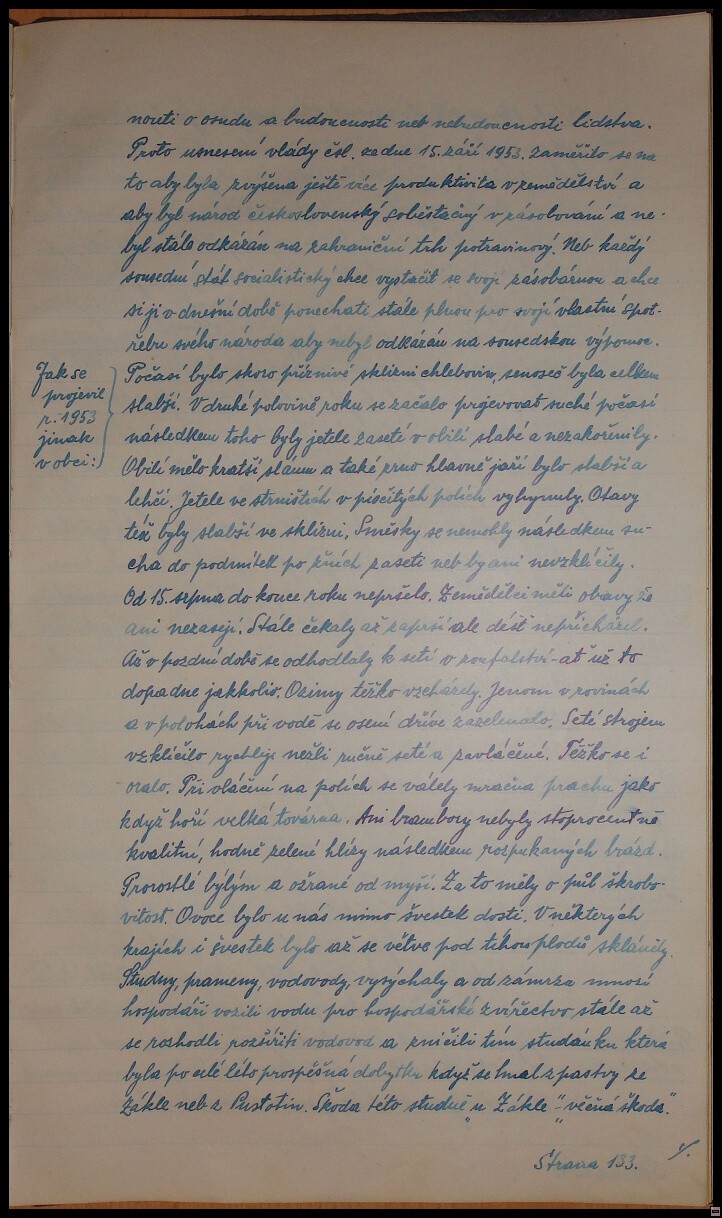 nouti o osudu a budoucnosti neb nebudoucnosti lidstva.
Proto usnesení vlády čsl. ze dne 15. září 1953. zaměřilo se na
to aby byla zvýšena ještě více produktivita v zemědělství a
aby byl národ československý soběstačný v zásobování a ne-
byl stále odkázán na zahraniční trh potravinový. Neb každý
sousední stát socialistický chce vystačit se svojí zásobárnou a chce
si ji v dnešní době ponechati stále plnou pro svojí vlastní spot-
řebu svého národa aby nebyl odkázán na sousedskou výpomoc.
Jak se
projevil
r. 1953
jinak
v obci:
Počasí bylo skoro příznivé sklizni chlebovin, senoseč byla celkem
slabší. V druhé polovině roku se začalo projevovat suché počasí
následkem toho byly jetele zaseté v obilí slabé a nezakořenily.
Obilí mělo kratší slámu a také zrno hlavně jaří bylo slabší a
lehčí. Jetele ve strništích v písčitých polích vyhynuly. Otavy
též byly slabší ve sklizni. Směsky se nemohly následkem su-
cha do podmítek po žních zaseti neb by ani nevzklíčily.
Od 15. srpna do konce roku nepršelo. Zemědělci měli obavy že
ani nezasejí. Stále čekaly až zaprší ale déšť nepřicházel.
Až v pozdní době se odhodlaly k setí v zoufalství - ať už to
dopadne jakkoliv. Ozimy těžko vzcházely. Jenom v rovinách
a v polohách při vodě se osení dříve zazelenalo. Seté strojem
vzklíčilo rychleji nežli ručně seté a zavláčené. Těžko se i
oralo. Při vláčení na polích se válely mračna prachu jako
když hoří velká továrna. Ani brambory nebyly stoprocentně
kvalitní, hodně zelené hlízy následkem rozpukaných brázd.
Prorostlé býlým a ožrané od myší. Za to měly o půl škrobo-
vitost. Ovoce bylo u nás mimo švestek dosti. V některých
krajích i švestek bylo až se větve pod tíhou plodů skláněly.
Studny, prameny, vodovody, vysýchaly a od zámrza mnozí
hospodáři vozili vodu pro hospodářské zvířectvo stále až
se rozhodli rozšířiti vodovod a zničili tím studánku která
byla po celé léto prospěšná dobytku když se hnal z pastvy ze
Zákle neb z Pustotin. Škoda této studně „u Zákle" - „věčná škoda".
Strana 133.